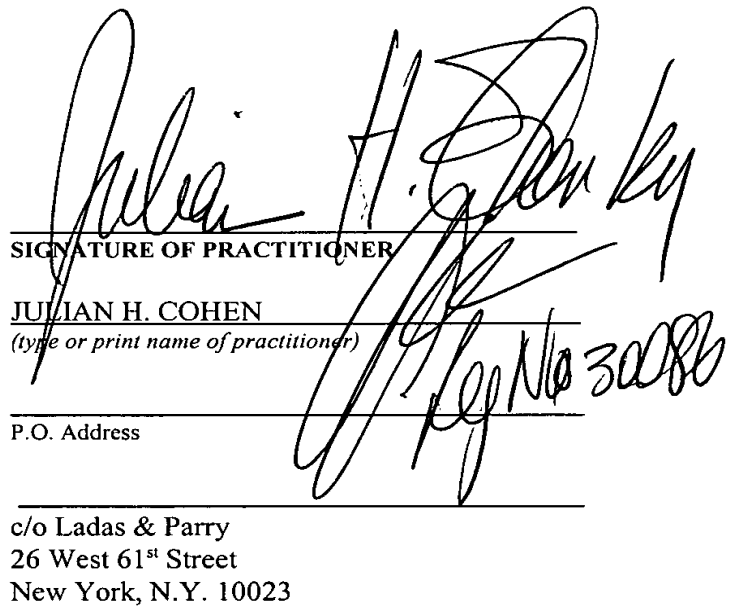 Julian H. Cohen by
SIGNATURE OF PRACTITIONER
JULIAN H. COHEN
(type or print name of practitioner)
Reg No 30086
P.O. Address
c/o Ladas & Parry
26 West 61st Street
New York, N.Y. 10023